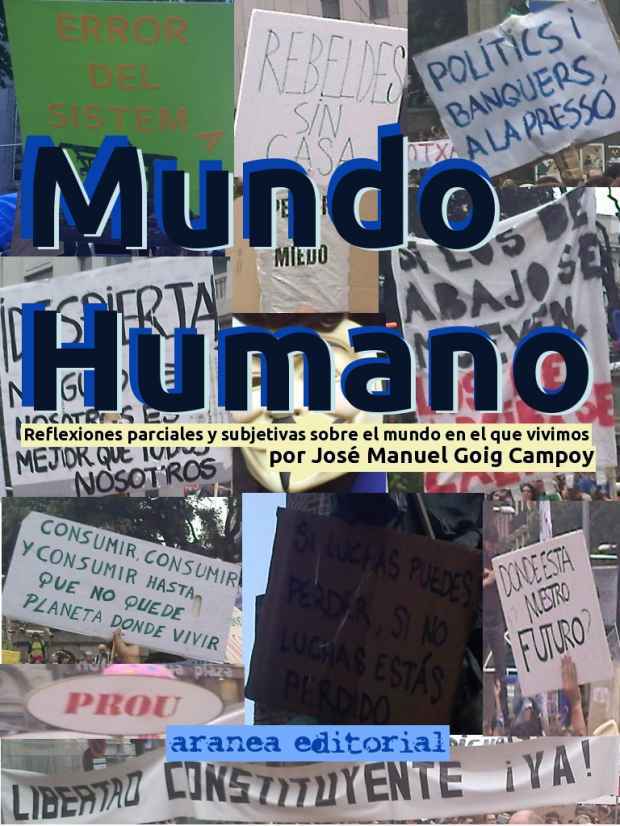 ERROR
DEL
SISTEM
REBELDES
SIN
CASA
POLÍTICS i
BANQUERS,
A LA PRESSÓ
OTX
Mundo
MIEDO
LOS DE
ABAJO SE
¡DESPIERTA
Humano
NOSOTROS ES
MEJOR QUE TODOS
NOSOTROS
Reflexiones parciales y subjetivas sobre el mundo en el que vivimos
por José Manuel Goig Campoy
CONSUMIR, CONSUMIR
Y CONSUMIR HASTA
QUE NO QUEDE
PLANETA DONDE VIVIR
SI LUCHAS PUEDES
PERDER, SI NO
LUCHAS ESTÁS
PERDIDO
DONDE ESTA
NUESTRO
FUTURO?
PROU
aranea editorial
LIBERTAD CONSTITUYENTE ¡YA!